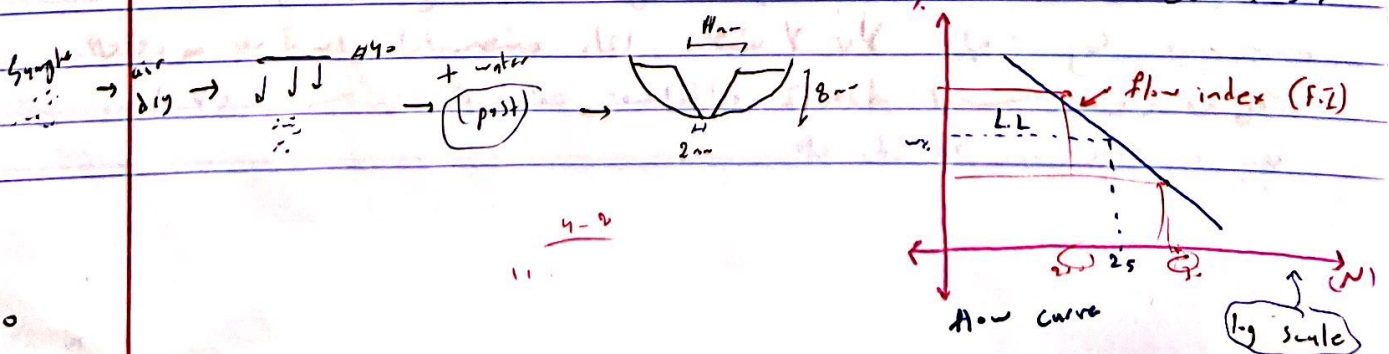 Sample → air dry → #40 → + water (past) →
11 mm
8 mm
2 mm
%
flow index (F.I)
L.L
w%
25
(N)
flow curve
log scale